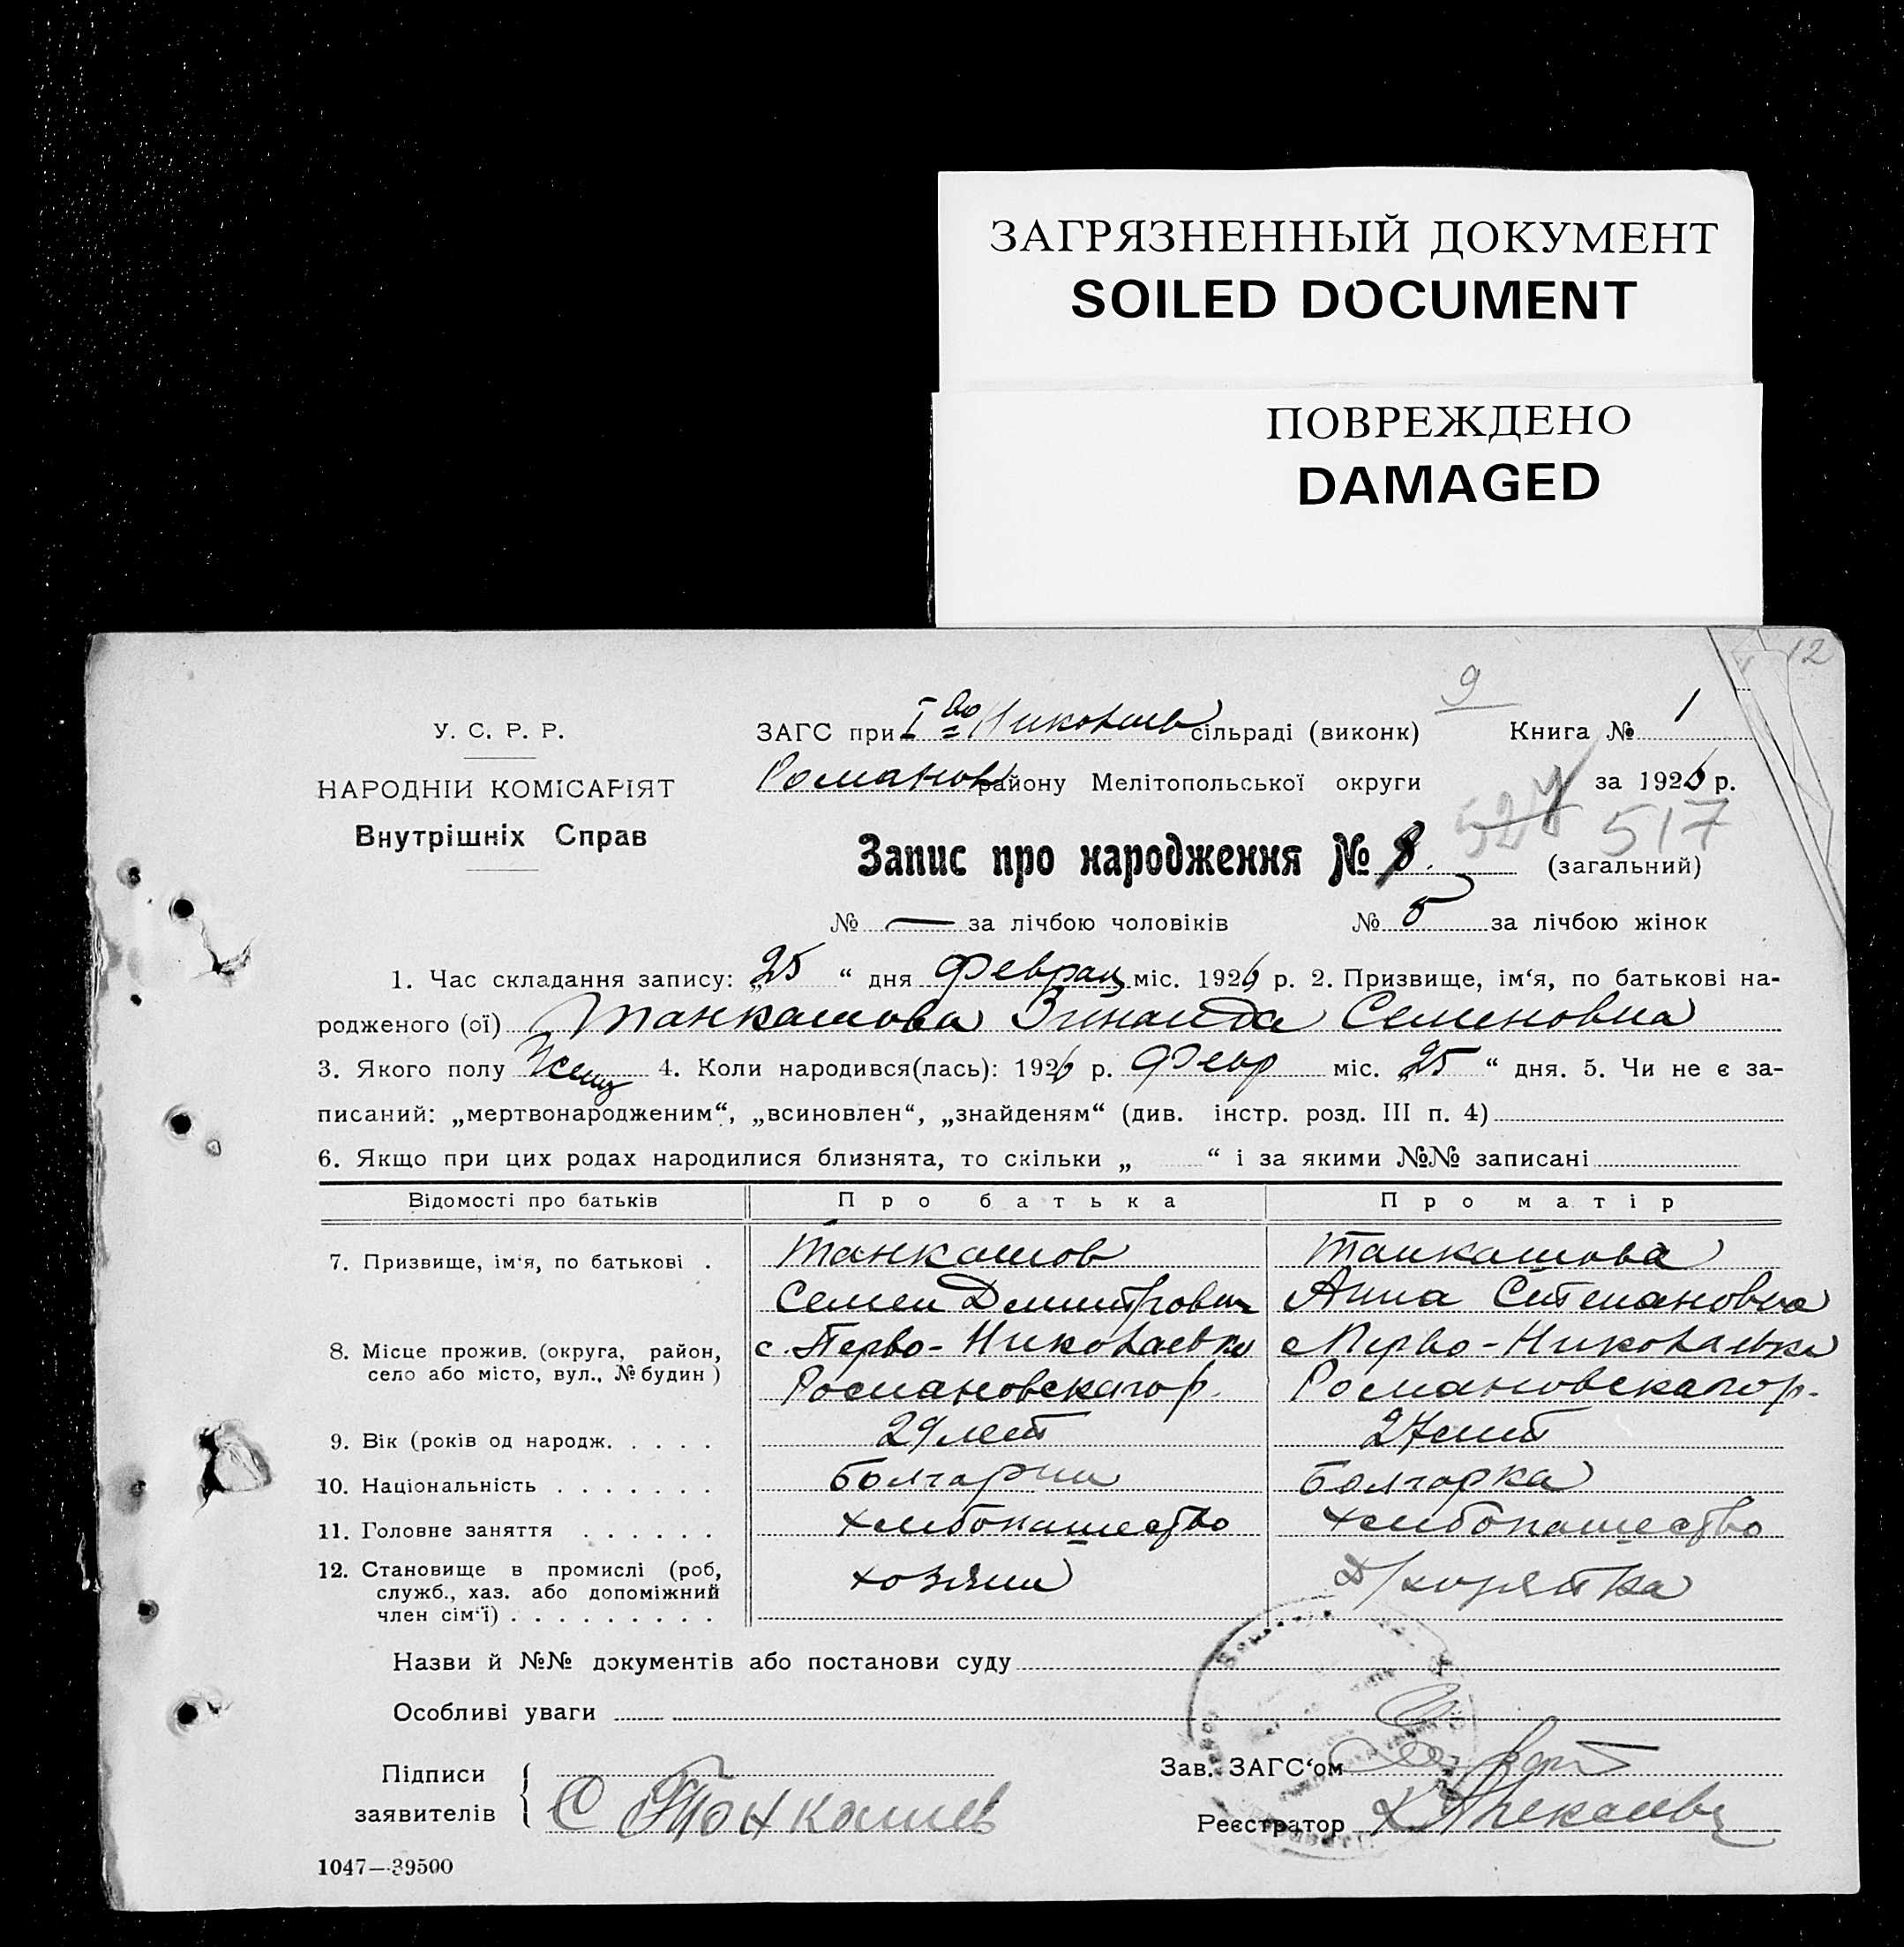 ЗАГРЯЗНЕННЫЙ ДОКУМЕНТ
SOILED DOCUMENT
ПОВРЕЖДЕНО
DAMAGED
12
9
У. С. Р. Р.
ЗАГС при I во Николаев сільраді (виконк) Книга № 1
НАРОДНІЙ КОМІСАРІЯТ
Романов району Мелітопольської округи за 1926 р.
Внутрішніх Справ
517
Запис про народження № 8. (загальний)
№ — за лічбою чоловіків № 5 за лічбою жінок
1. Час складання запису: „25 “ дня Феврал міс. 1926 р. 2. Призвище, ім‘я, по батькові на-
родженого (ої) Танкашова Зинаида Семеновна
3. Якого полу Женщ 4. Коли народився(лась): 1926 р. Февр міс. „25 “ дня. 5. Чи не є за-
писаний: „мертвонародженим“, „всиновлен“, „знайденям“ (див. інстр. розд. III п. 4)
6. Якщо при цих родах народилися близнята, то скільки „ “ і за якими №№ записані
Відомості про батьків Про батька Про матір
7. Призвище, ім‘я, по батькові . Танкашов Танкашова
Семен Дмитрович Анна Степановна
8. Місце прожив. (округа, район, село або місто, вул., № будин ) с. Перво-Николаевка с Перво-Николаевка
Романовскаго р. Романовскаго р.
9. Вік (років од народж. . . . . 29 лет 27 лет
10. Національність . . . . . . . Болгарин Болгарка
11. Головне заняття . . . . . . хлебопашество хлебопашество
12. Становище в промислі (роб, служб., хаз. або допоміжний член сім‘ї) . . . . . . . . . хозяин
Назви й №№ документів або постанови суду
Особливі уваги
Підписи заявителів С Танкашев
Зав. ЗАГС‘ом
Реєстратор
1047—39500